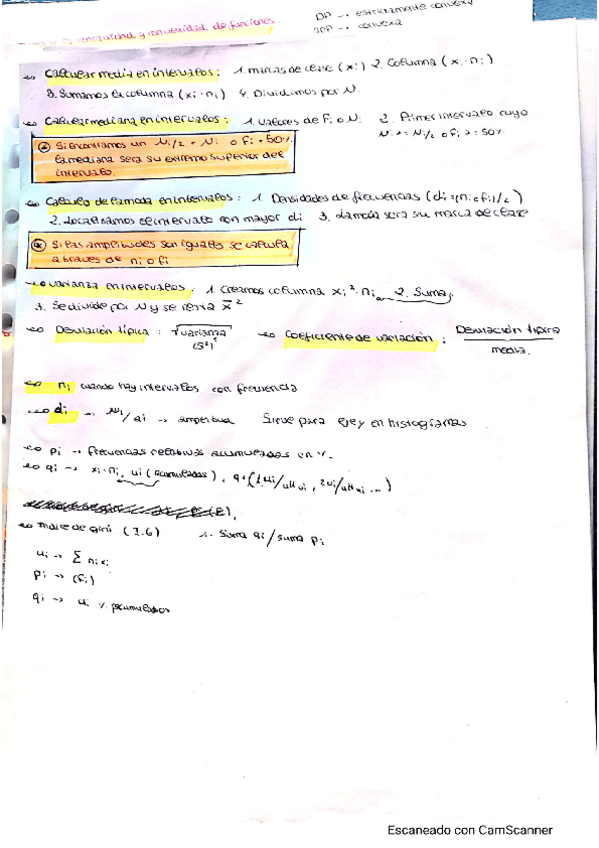 DP → estrictamente convexa
SDP → convexa
concavidad y convexidad de funciones.
Calcular media en intervalos: 1. marcas de clase (xi) 2. Columna (xi · ni)
3. Sumamos la columna (xi · ni) 4. Dividimos por N.
Calcular mediana en intervalos: 1. Valores de Fi o Ni 2. Primer intervalo cuyo
Ni >= N/2 o Fi >= 50%.
Si encontramos un Ni/2 = Ni o Fi = 50%
la mediana sera su extremo superior del
intervalo.
Calculo de la moda en intervalos: 1. Densidades de frecuencias (di = ni o fi/)
2. Localizamos el intervalo con mayor di 3. La moda sera su marca de clase
Si las amplitudes son iguales se calcula
a traves de ni o fi
Varianza en intervalos: 1. Creamos columna xi² · ni 2. Suma
3. Se divide por N y se resta x̄²
Desviación típica: √varianza (S²) Coeficiente de variación: Desviación típica / media.
ni cuando hay intervalos con frecuencia
di → ni/ai → amplitud Sirve para eje y en histogramas
pi → frecuencias relativas acumuladas en %.
qi → xi · ni, ui (acumuladas),
Indice de gini (I.G) 1 - Suma qi / suma pi
ui → Σ ni xi
pi → (Fi)
qi → ui % acumulados
Escaneado con CamScanner